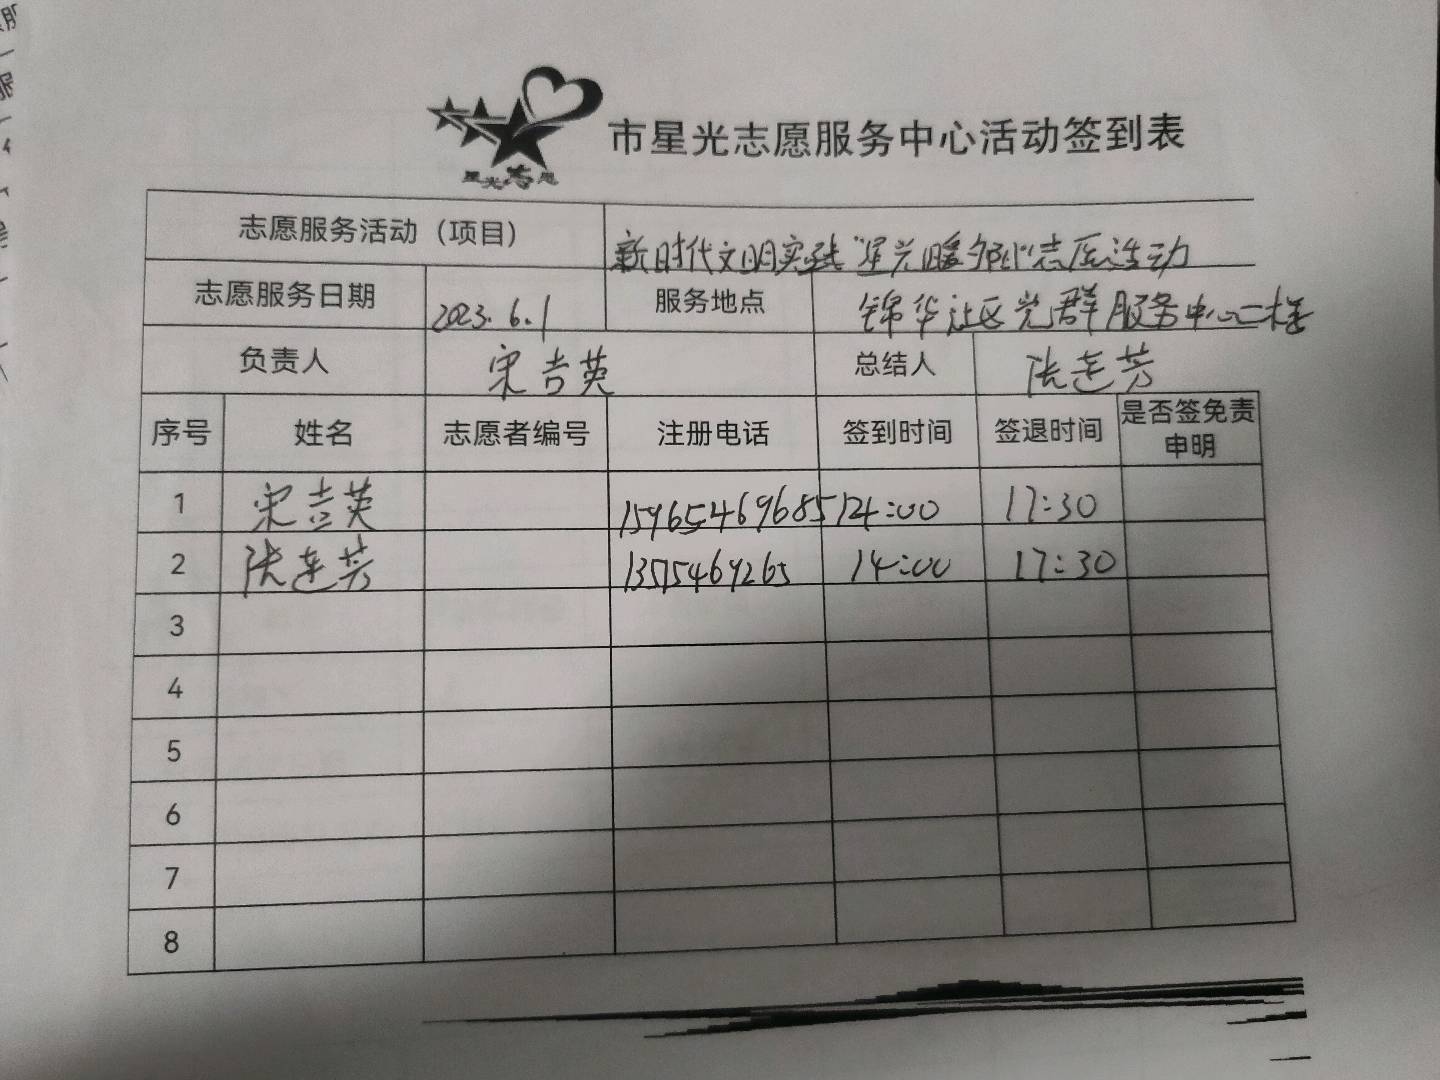 星光志愿
市星光志愿服务中心活动签到表
志愿服务活动（项目） 新时代文明实践"星光暖邻"志愿活动
志愿服务日期 2023.6.1 服务地点 锦华社区党群服务中心二楼
负责人 宋吉英 总结人 张莲芳
序号 姓名 志愿者编号 注册电话 签到时间 签退时间 是否签免责
申明
1 宋吉英 15965469685 14:00 17:30
2 张莲芳 14:00 17:30
3
4
5
6
7
8